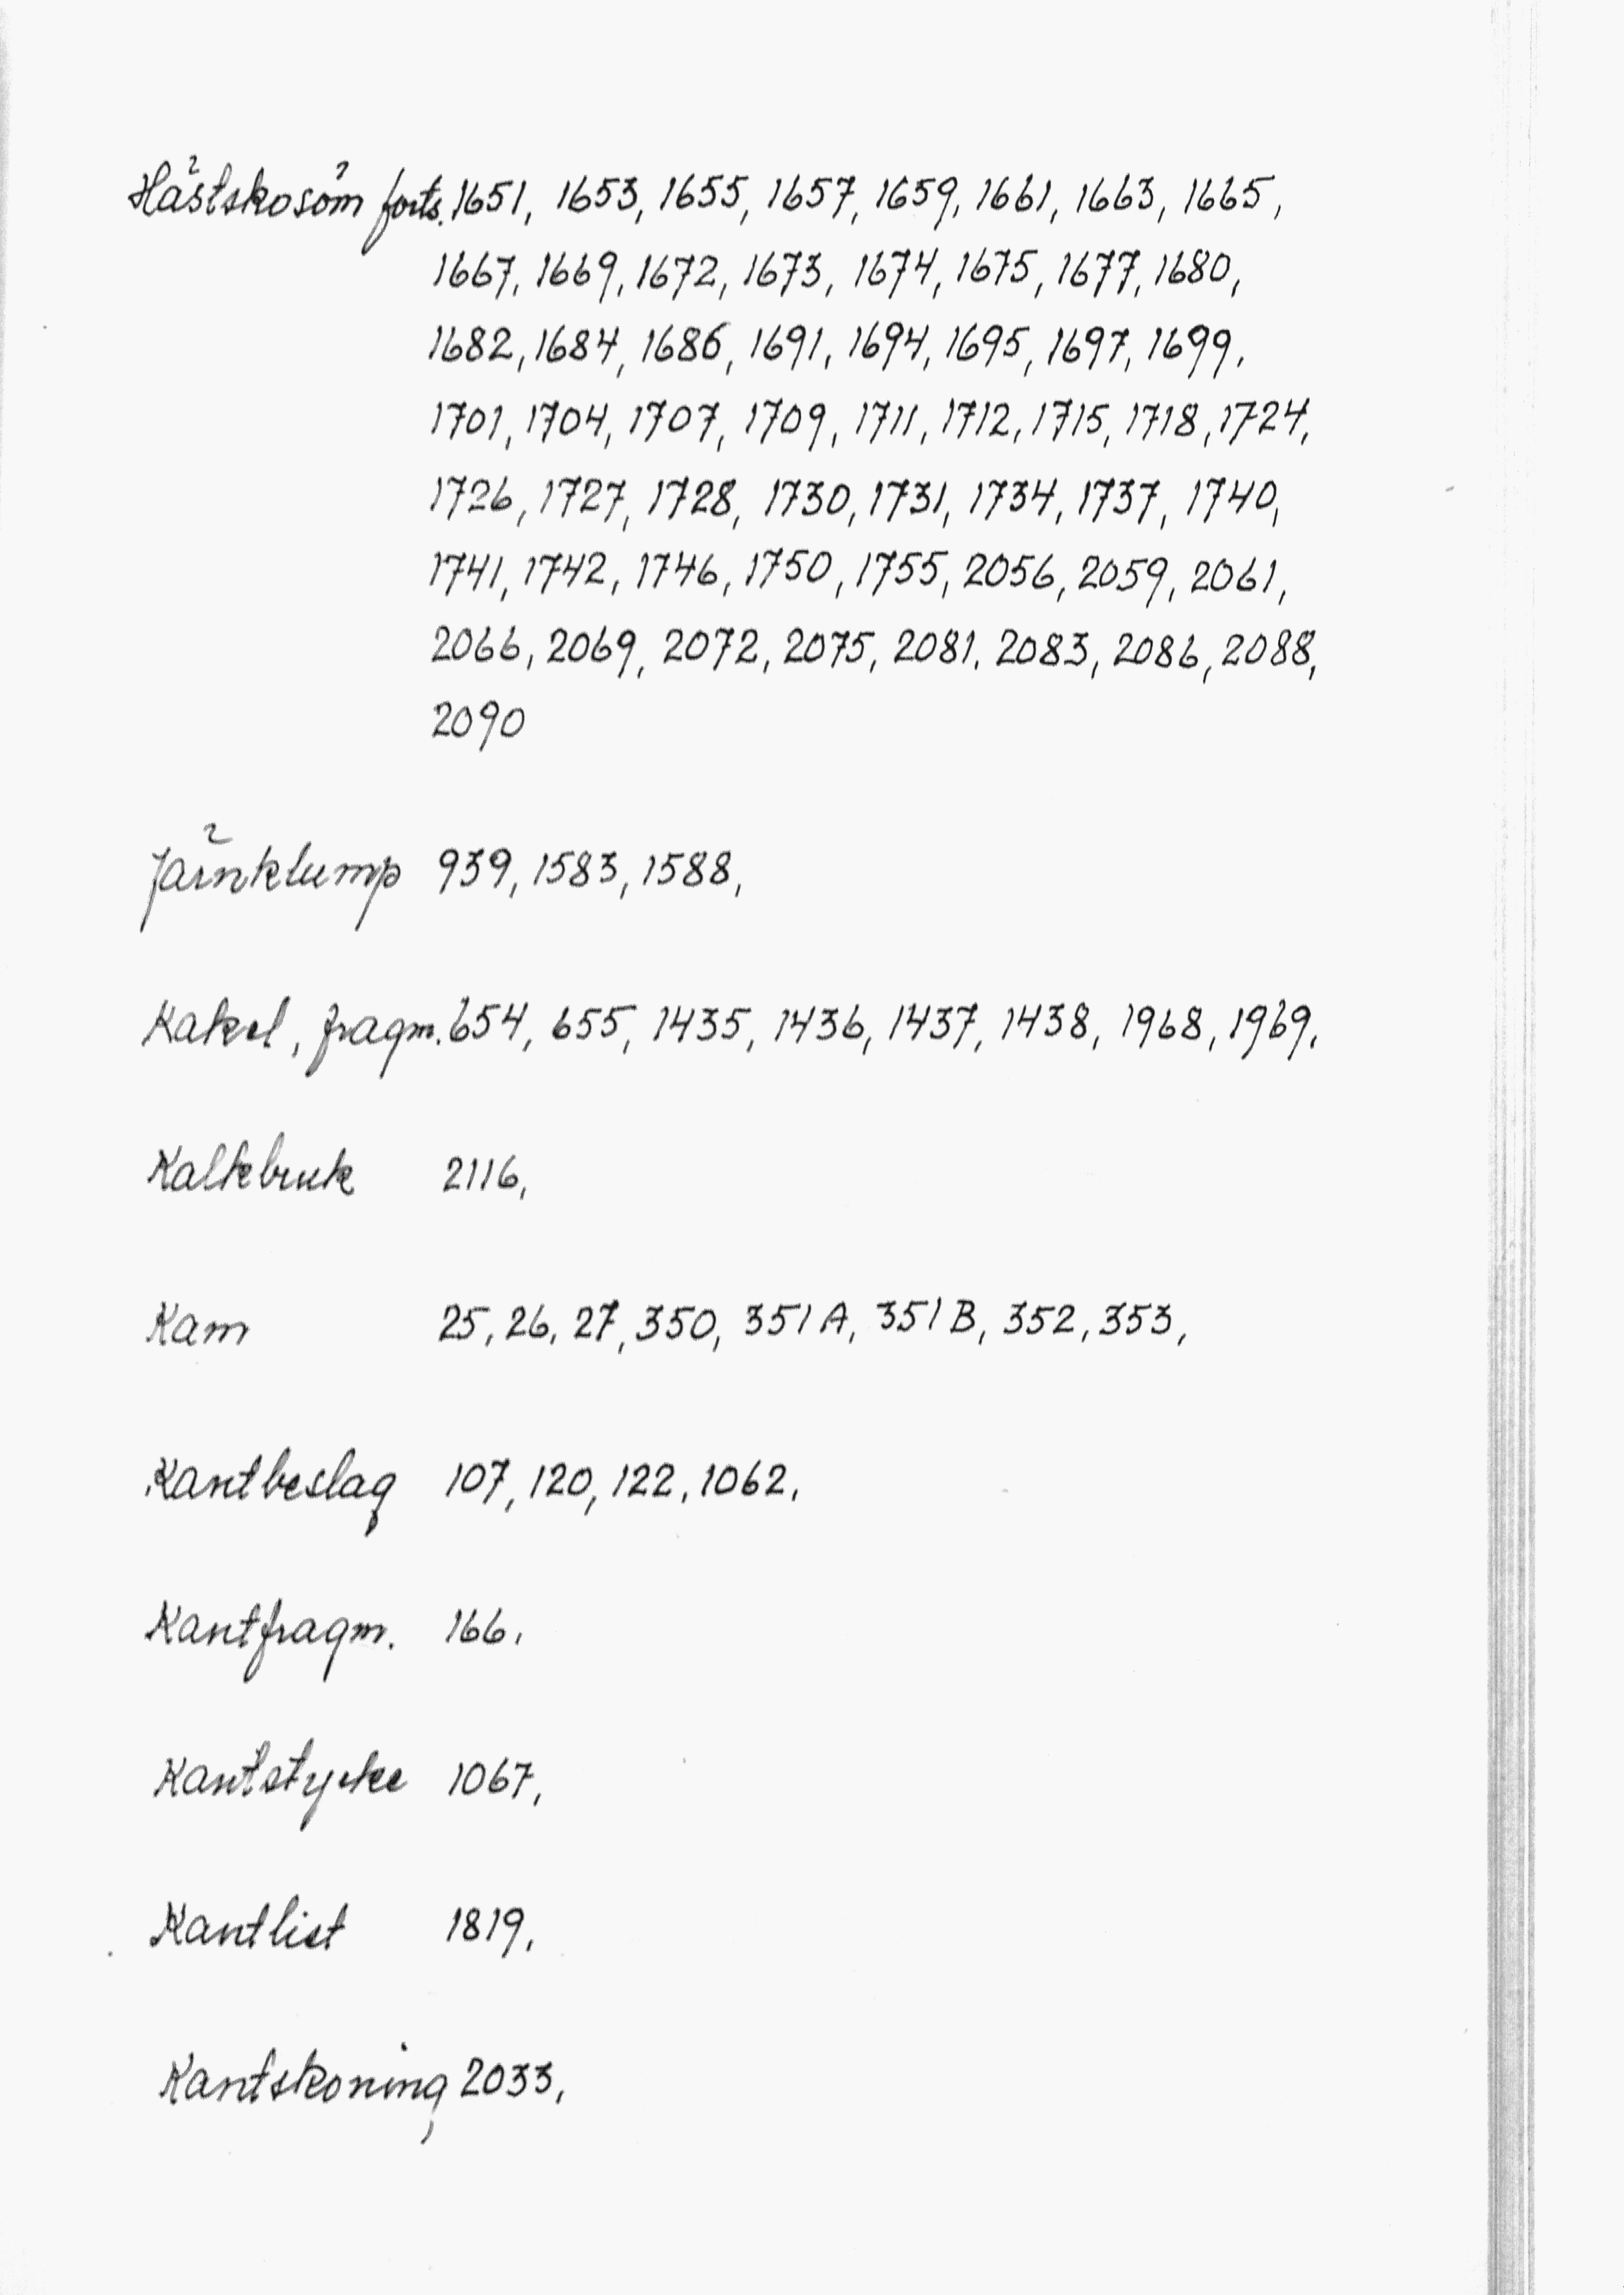 Hästskosöm forts. 1651, 1653, 1655, 1657, 1659, 1661, 1663, 1665,
1667, 1669, 1672, 1673, 1674, 1675, 1677, 1680,
1682, 1684, 1686, 1691, 1694, 1695, 1697, 1699,
1701, 1704, 1707, 1709, 1711, 1712, 1715, 1718, 1724,
1726, 1727, 1728, 1730, 1731, 1734, 1737, 1740,
1741, 1742, 1746, 1750, 1755, 2056, 2059, 2061,
2066, 2069, 2072, 2075, 2081, 2083, 2086, 2088,
2090
Järnklump 939, 1583, 1588,
Kakel, fragm. 654, 655, 1435, 1436, 1437, 1438, 1968, 1969,
Kalkbruk 2116,
Kam 25, 26, 27, 350, 351 A, 351 B, 352, 353,
Kantbeslag 107, 120, 122, 1062,
Kantfragm. 166,
Kantstycke 1067,
Kantlist 1819,
Kantskoning 2033,